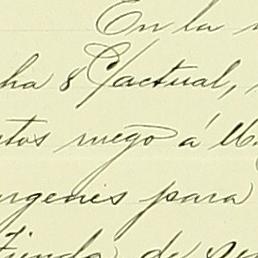 En la
ha 8 C/actual,
tos ruego á
rgenes para
tienda de